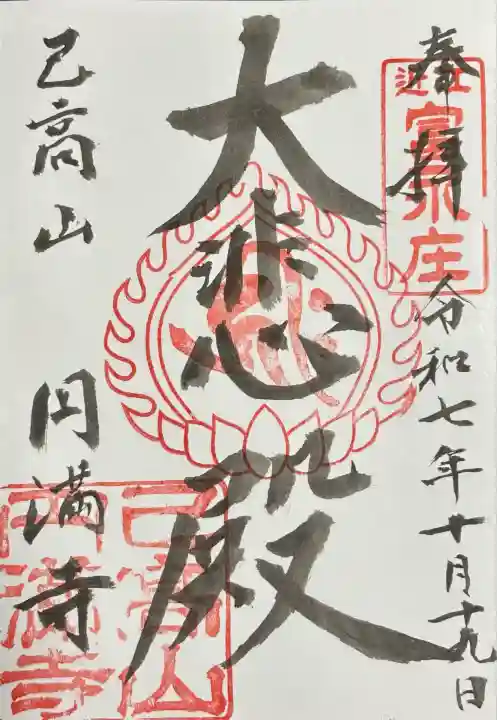 奉拝
令和七年十月十九日
近江
富永庄
大悲殿
己高山 円満寺
己高山
円満寺